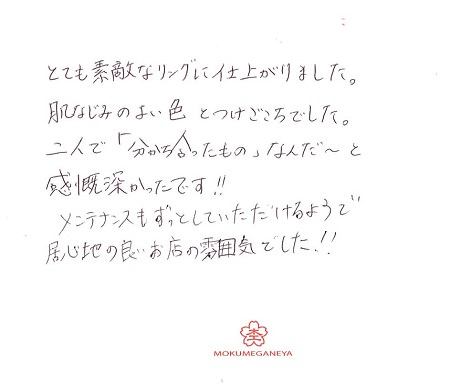 とても素敵なリングに仕上がりました。
肌なじみのよい色とつけごこちでした。
二人で「分かち合ったもの」なんだ～と
感慨深かったです!!
メンテナンスもずっとしていただけるようで
居心地の良いお店の雰囲気でした!!
MOKUMEGANEYA